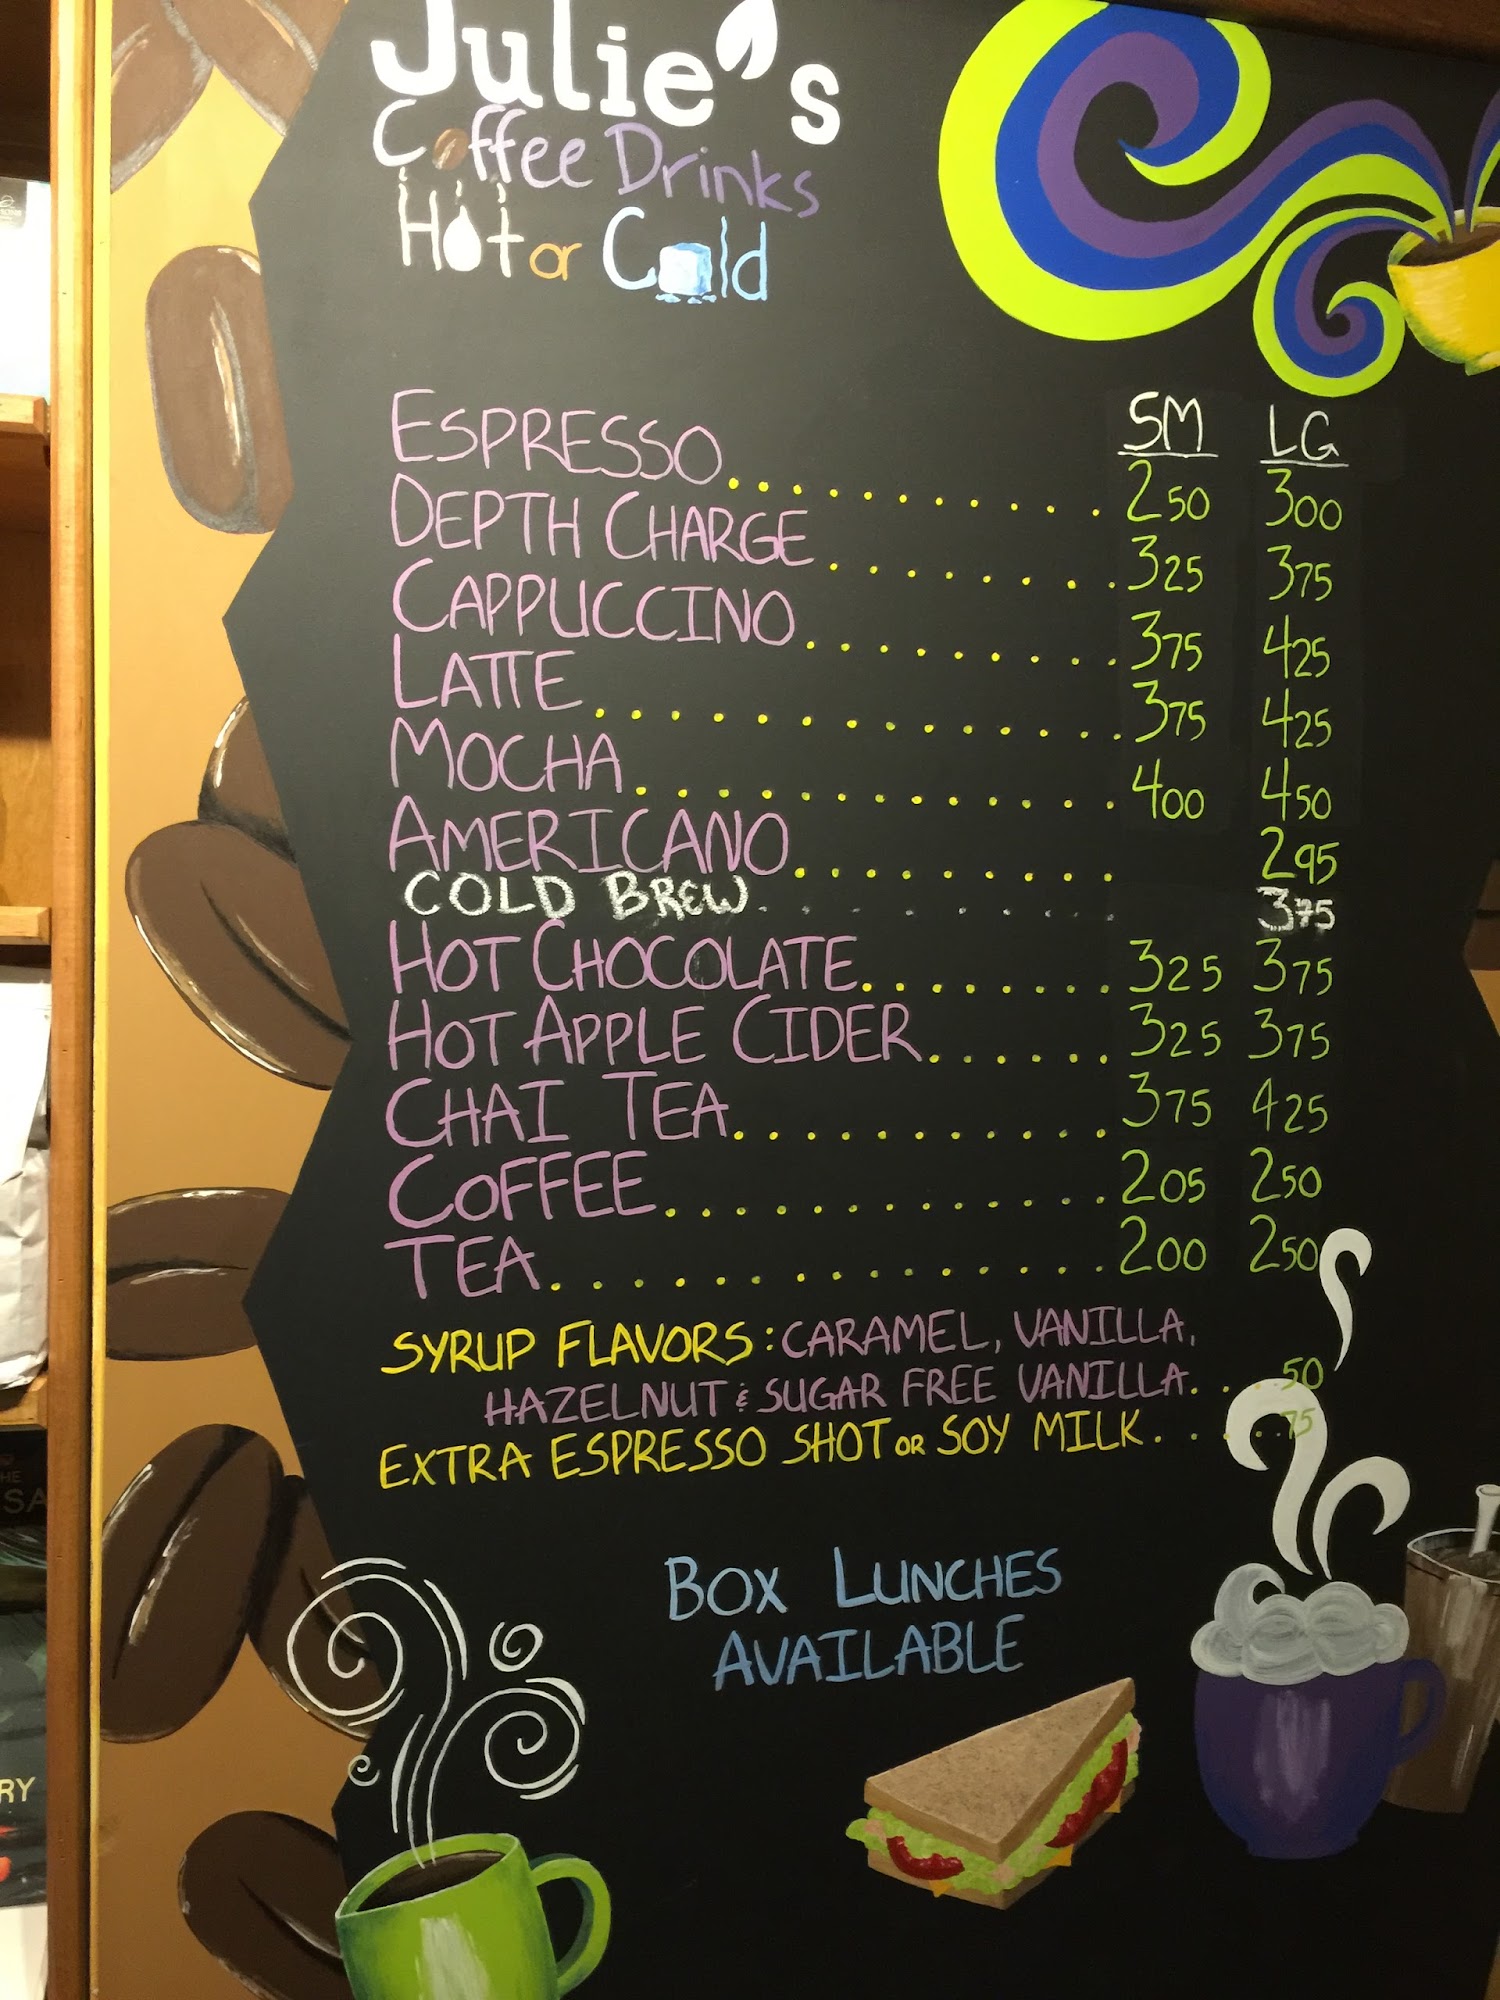 Julie's
Coffee Drinks
Hot or Cold
SM LG
ESPRESSO.......... 250 300
DEPTH CHARGE........ 325 375
CAPPUCCINO.......... 375 425
LATTE.............. 375 425
MOCHA............ 400 450
AMERICANO.......... 295
COLD BREW........ 375
HOT CHOCOLATE........ 325 375
HOT APPLE CIDER...... 325 375
CHAI TEA............ 375 425
COFFEE.............. 205 250
TEA................. 200 250
SYRUP FLAVORS: CARAMEL, VANILLA,
HAZELNUT & SUGAR FREE VANILLA.... 50
EXTRA ESPRESSO SHOT OR SOY MILK..... 75
BOX LUNCHES
AVAILABLE
RY